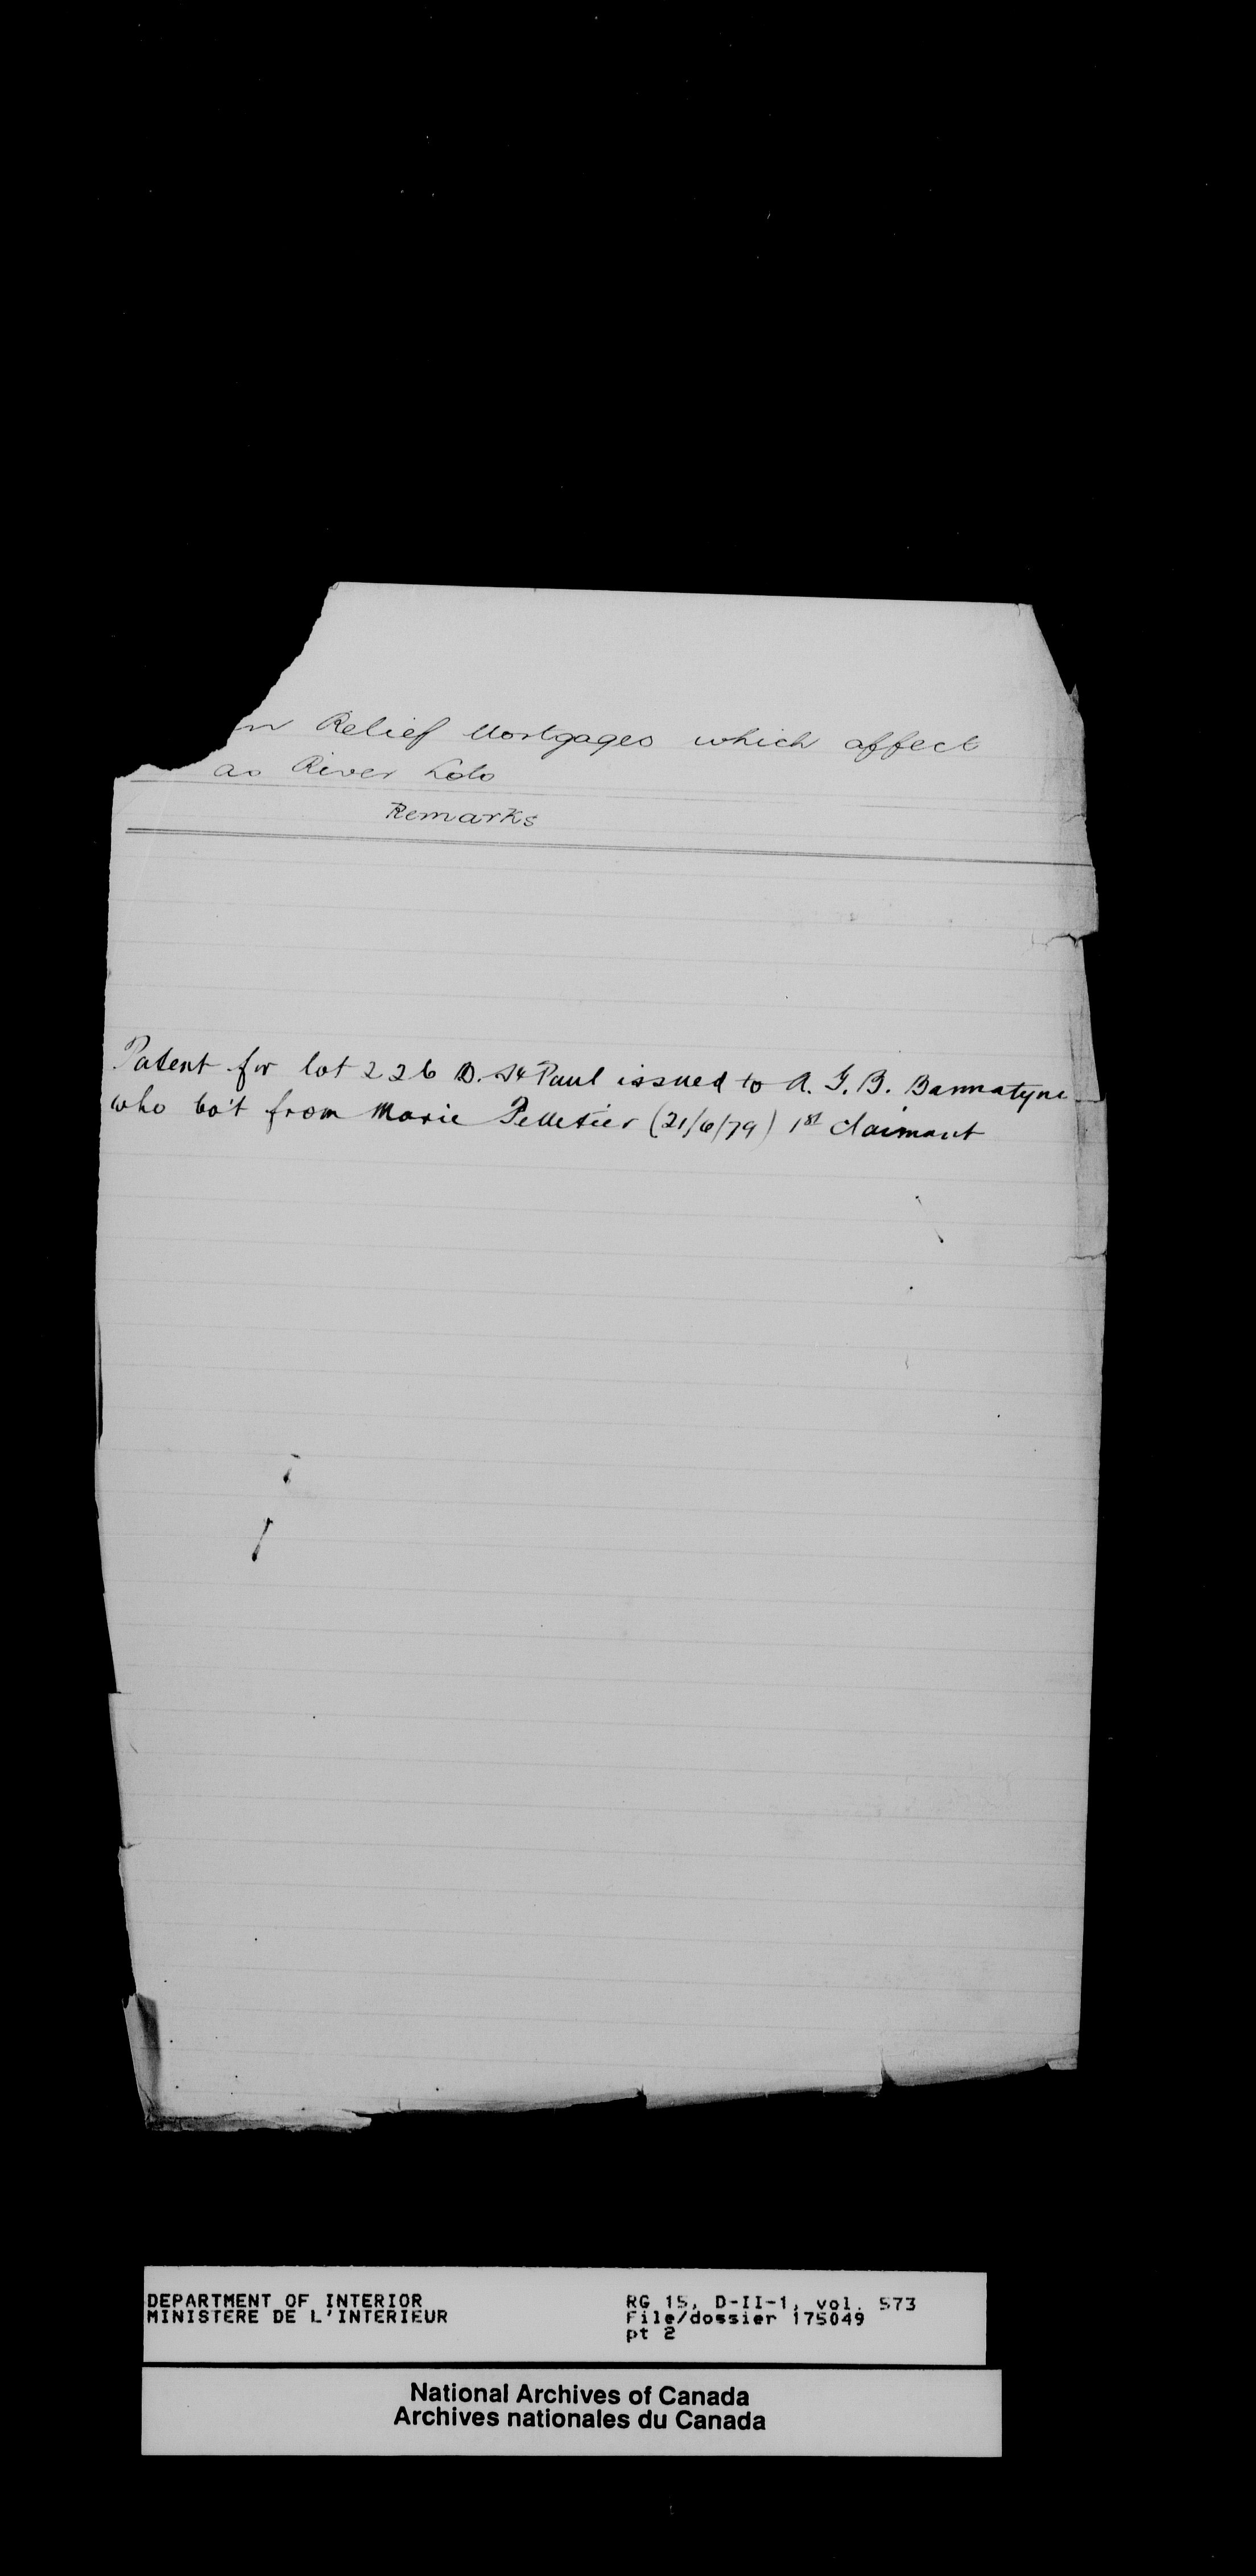 Relief Mortgages which affect
as River Lots
Remarks
Patent for lot 226 D. St Paul issued to A. G. B. Bannatyne
who bo't from Marie Pelletier (21/6/79) 1st claimant
DEPARTMENT OF INTERIOR
MINISTERE DE L'INTERIEUR
RG 15, D-II-1, vol. 573
File/dossier 175049
pt 2
National Archives of Canada
Archives nationales du Canada